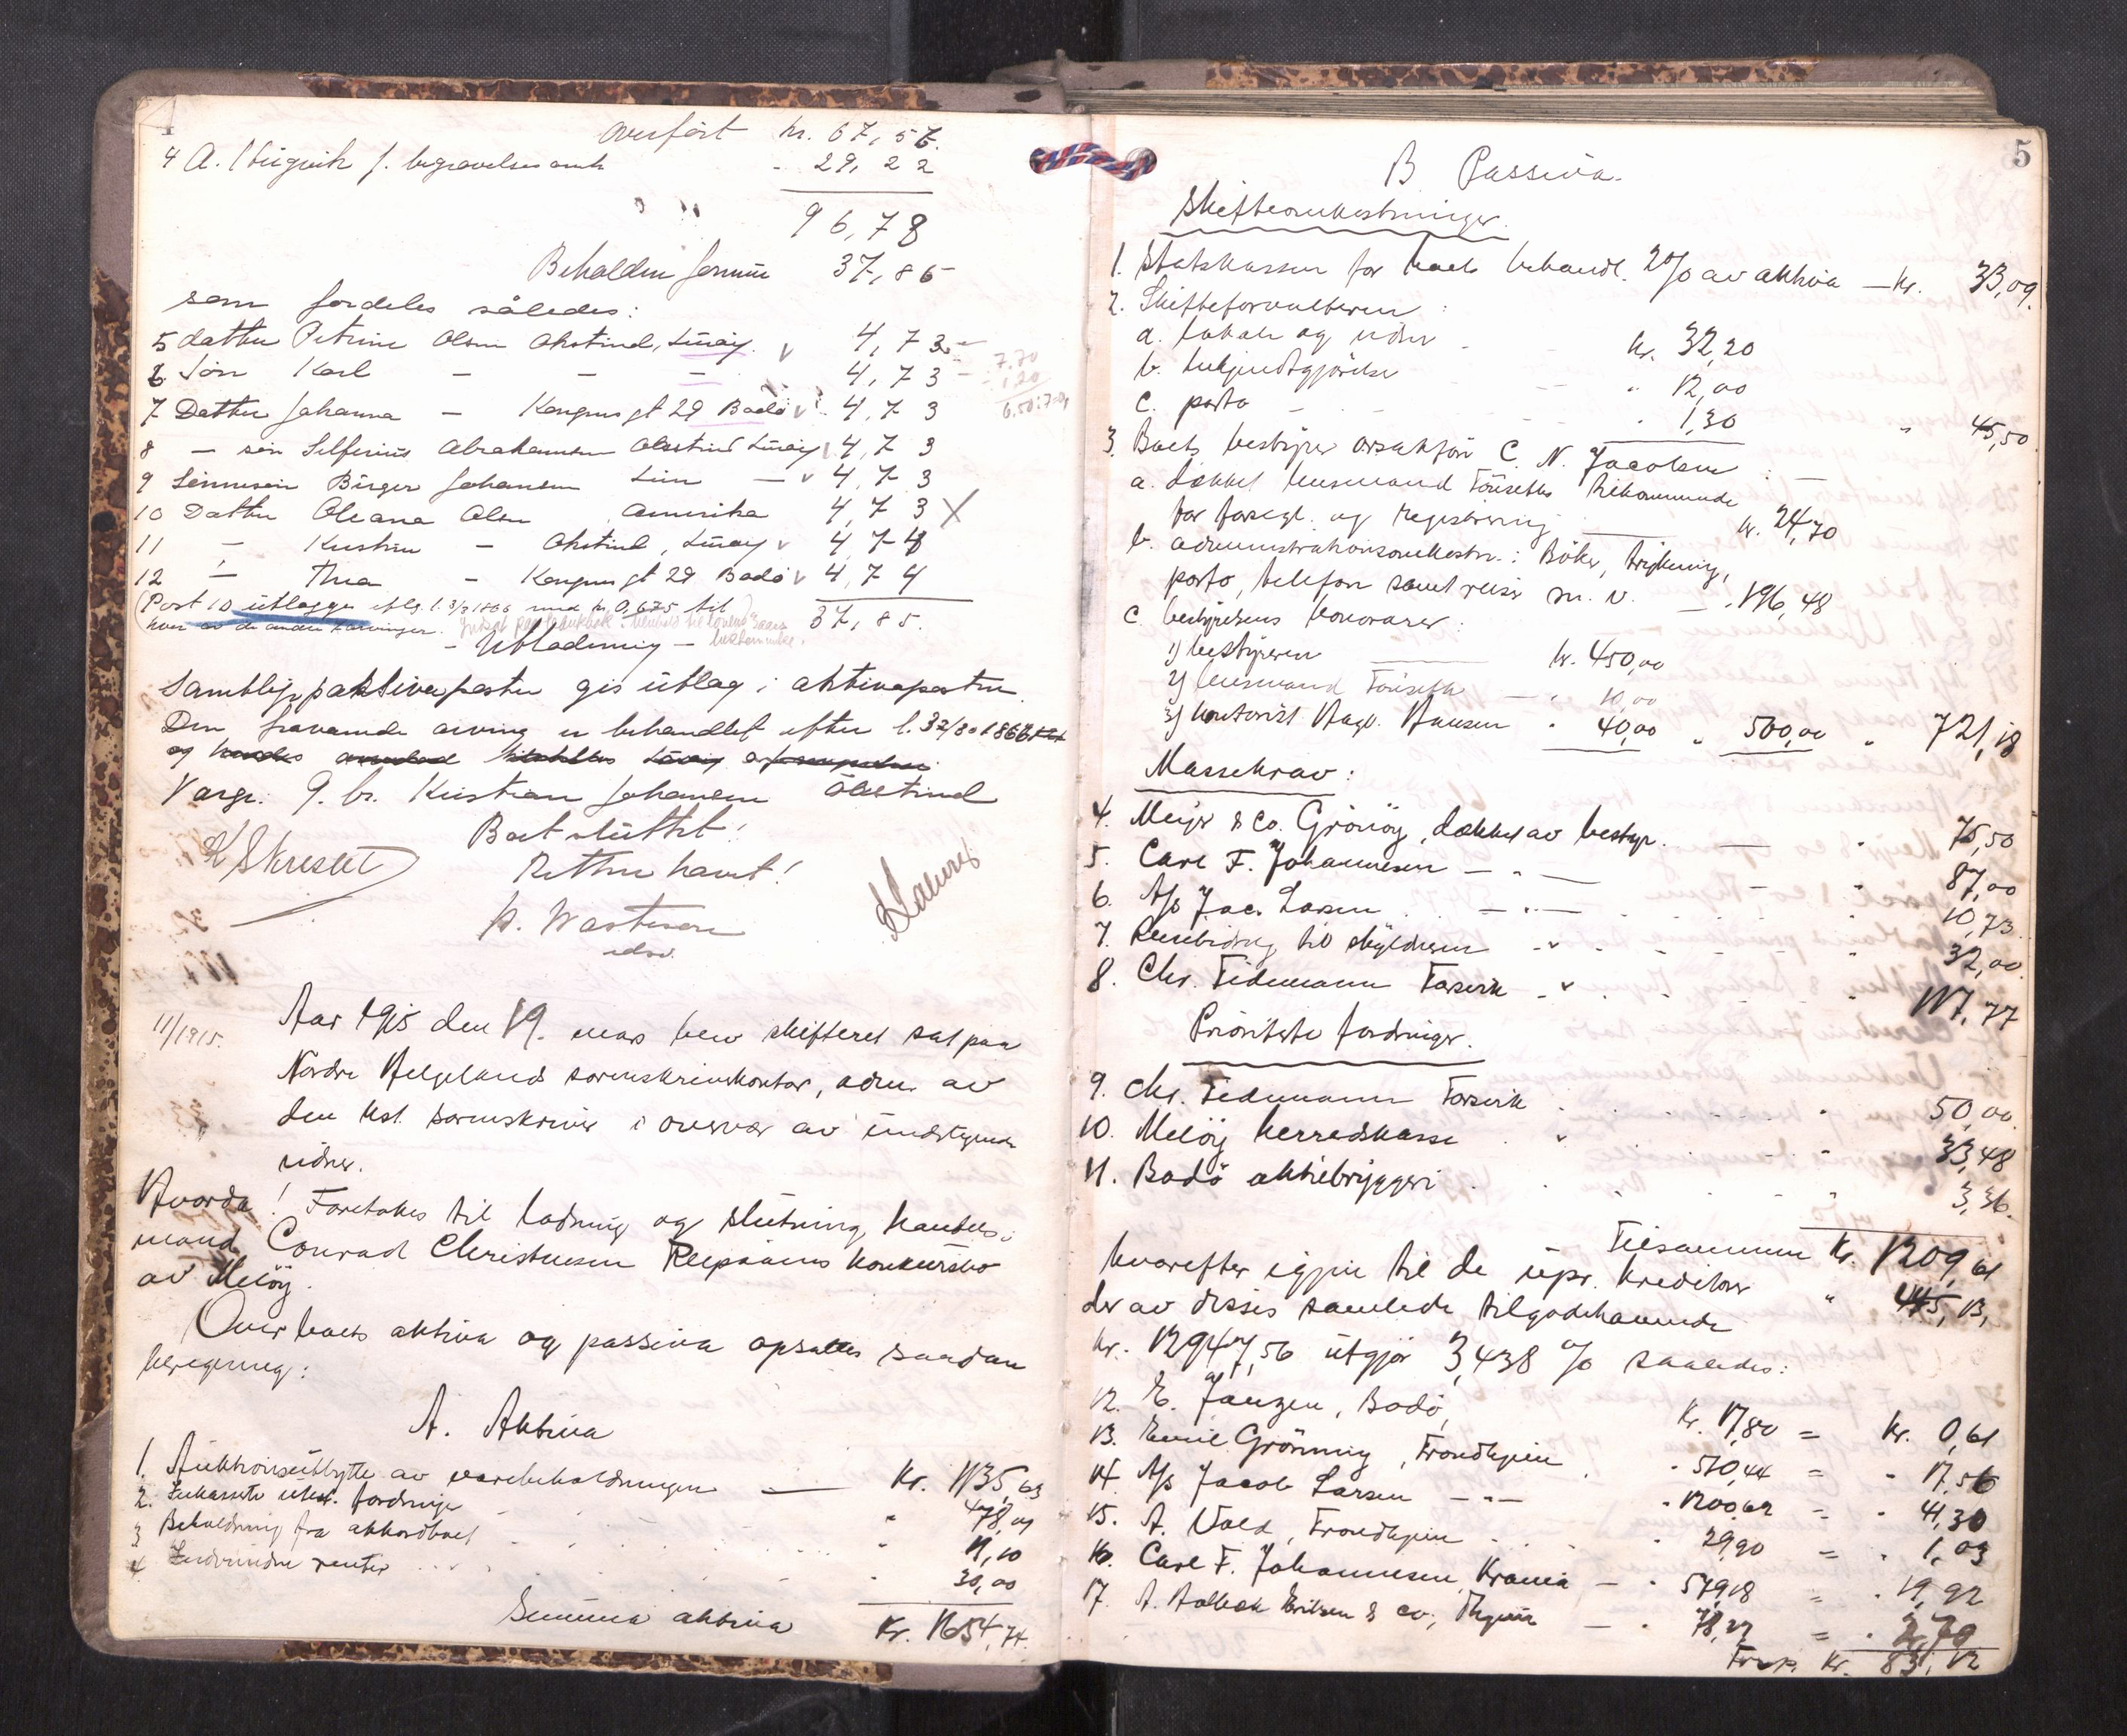 4
overført kr. 67,56.
4 A. f. begravelsesomk - 29,22
96,78
Beholden formue 37,85
som fordeles således:
5 datter Petrine Olsen Økstind, Lurøy. v 4,73
6 Søn Karl - - - 4,73
7 Datter Johanna - Kongens gt 29 Bodö v 4,73
8 - søn Silferius Abrahamsen Økstind Lurøy v 4,73
9 Sönnesön Birger Johansen - v 4,73
10 Datter Oleana Olsen Amerika 4,73 X
11 - Kristine - Økstind, Lurøy v 4,74
12 - Thea - Kongens gt 29 Bodö v 4,74
(Post 10 utlægges eftr. l. 3/3 1866 med kr. 0,675 til 37,85.
hver av de andre 7 arvinger.
- Utlodning -
Samtlige passivaposter gis utlæg i aktivaposten.
Den fraværende arving er behandlet efter l. 1866
og
Varge: G. br. Kristian Johansen Økstind
Boet sluttet!
Retten hævet!
11/1915.
Aar 1915 den 19. mars blev skifteret sat paa
Nordre Helgelands sorenskriverkontor, adm. av
den kst. sorenskriver i overvær av undertegnede
vidner.
Hvorda! Foretokes til lodning og slutning handels-
mand Conrad Christensen Reipaaens konkursbo
av Melöy.
Over boets aktiva og passiva opsattes saadan
beregning:
A. Aktiva
1. Auktionsutbytte av varebeholdningen — Kr. 1135,63
2. Inkasserte utest. fordringer " 478,01
3 Beholdning fra akkordboet " 11,10
4 Indvundne renter " 30,00
Summa aktiva Kr. 1654,74.
5
B Passiva.
Skifteomkostninger.
1. Statskassen for boets behandl. 2% av aktiva — kr. 33,09.
2. Skifteforvalteren:
a. lokale og vidner kr. 32,20
b. bekjendtgjörelse " 12,00
c. porto " 1,30 " 45,50
3. Boets bestyrer orsakfører C. N. Jacobsen:
a. dækket lensmand Tousetts tilkommende
for forsegl. og registrering kr. 24,70
b. administrationsomkostn.: Böker, trykning,
porto, telefon samt reiser m. v. — " 196,48
c. bestyrelsens honorarer:
1) bestyreren kr. 450,00
2) lensmand Tousett — " 10,00
3) kontorist Hagb. Hansen " 40,00 " 500,00 " 721,18
Massekrav:
4. Meyer & Co. Grönöy, dækket av bestyr. — " 75,50
5. Carl F. Johannesen — " — " 87,00
6. A/s Jac. Larsen — " — 10,73
7. Reisebidrag til skyldneren - " 32,00
8. Chr. Tidemann Forsvik - " 117,77
Prioriterte fordringer.
9. Chr. Tidemann Forsvik " 50,00
10. Melöy herredskasse " 33,48
11. Bodö aktiebryggeri " 3,36.
Tilsammen Kr. 1209,61
hvorefter igjen til de upr. kreditorer " 445,13,
der av disses samlede tilgodehavende
kr. 12947,56 utgjör 3,438 % saaledes:
12. E. Janzen, Bodö, Kr. 17,80 = Kr. 0,61
13. Emil Grönning, Trondhjem " 510,44 = " 17,56
14. A/s Jacob Larsen — " — " 1200,62 = " 41,30
15. A. Vold, Trondhjem " 29,90 = " 1,03
16. Carl F. Johannesen, Krania — " 579,18 = " 19,92
17. A. Holbæk Eriksen & Co, Thjem — " 78,27 = " 2,70
Transp. Kr. 83,12